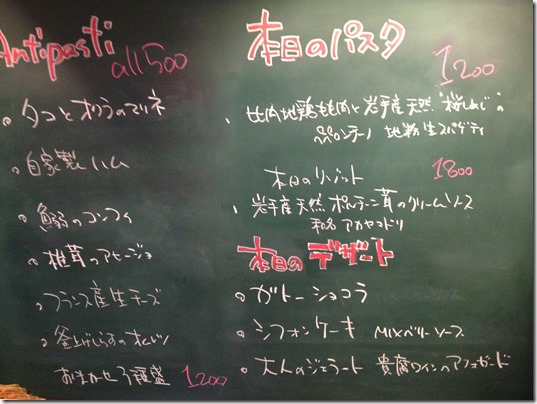 Antipasti
all 500
タコとオクラのマリネ
自家製ハム
鰯のコンフィ
椎茸のアヒージョ
フランス産生チーズ
釜上げしらすのオムレツ
おまかせ3種盛 1200
本日のパスタ
1200
比内地鶏もも肉と岩手産天然"桜しめじ"の
ペペロンチーノ 地粉生スパゲティ
本日のリゾット 1800
岩手産天然ポルチーニ茸のクリームソース
和名 アカヤマドリ
本日のデザート
ガトーショコラ
シフォンケーキ MIXベリーソース
大人のジェラート 貴腐ワインのアフォガード